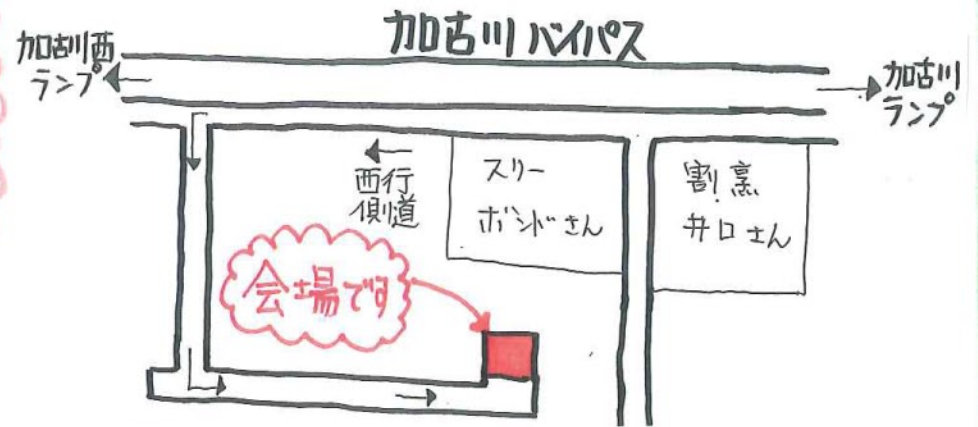 加古川バイパス
加古川西
ランプ
加古川
ランプ
西行
側道
スリー
ボンドさん
割烹
井口さん
会場です